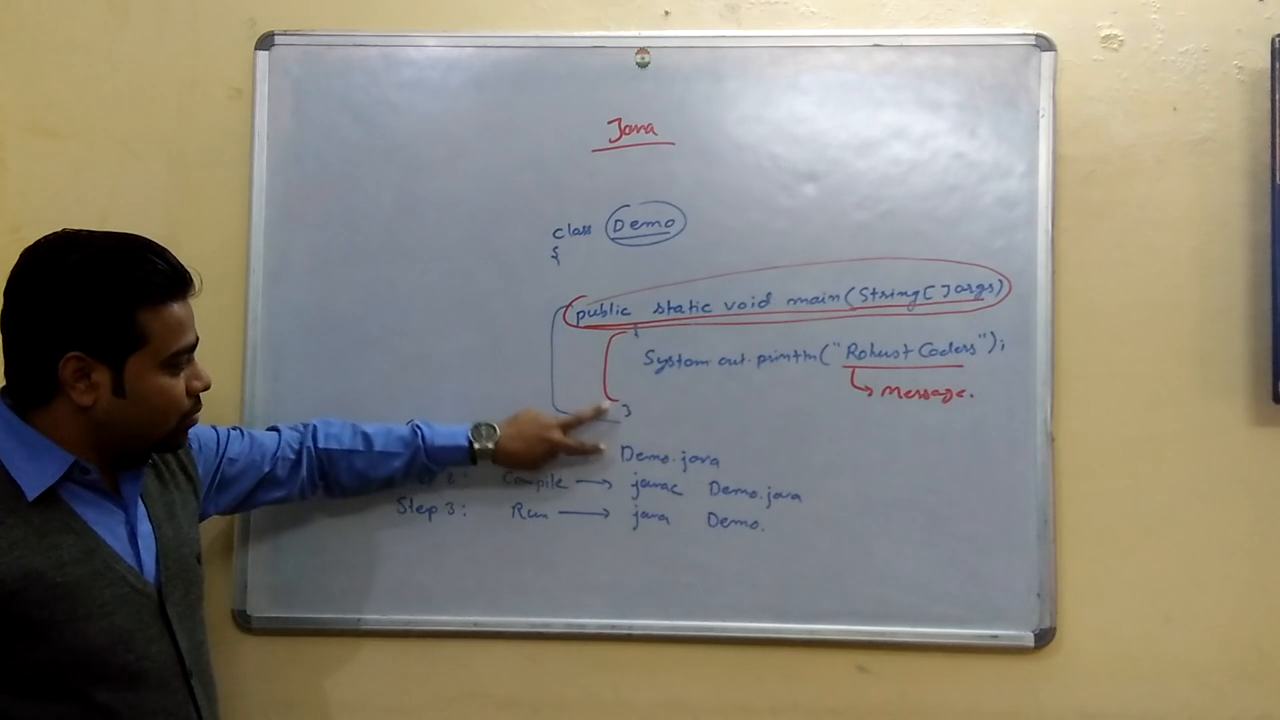 Java
class Demo
{
public static void main(String[]args)
{
System.out.println("Robust Coders");
Message.
}
Demo.java
Compile → javac Demo.java
Step 3: Run → java Demo.